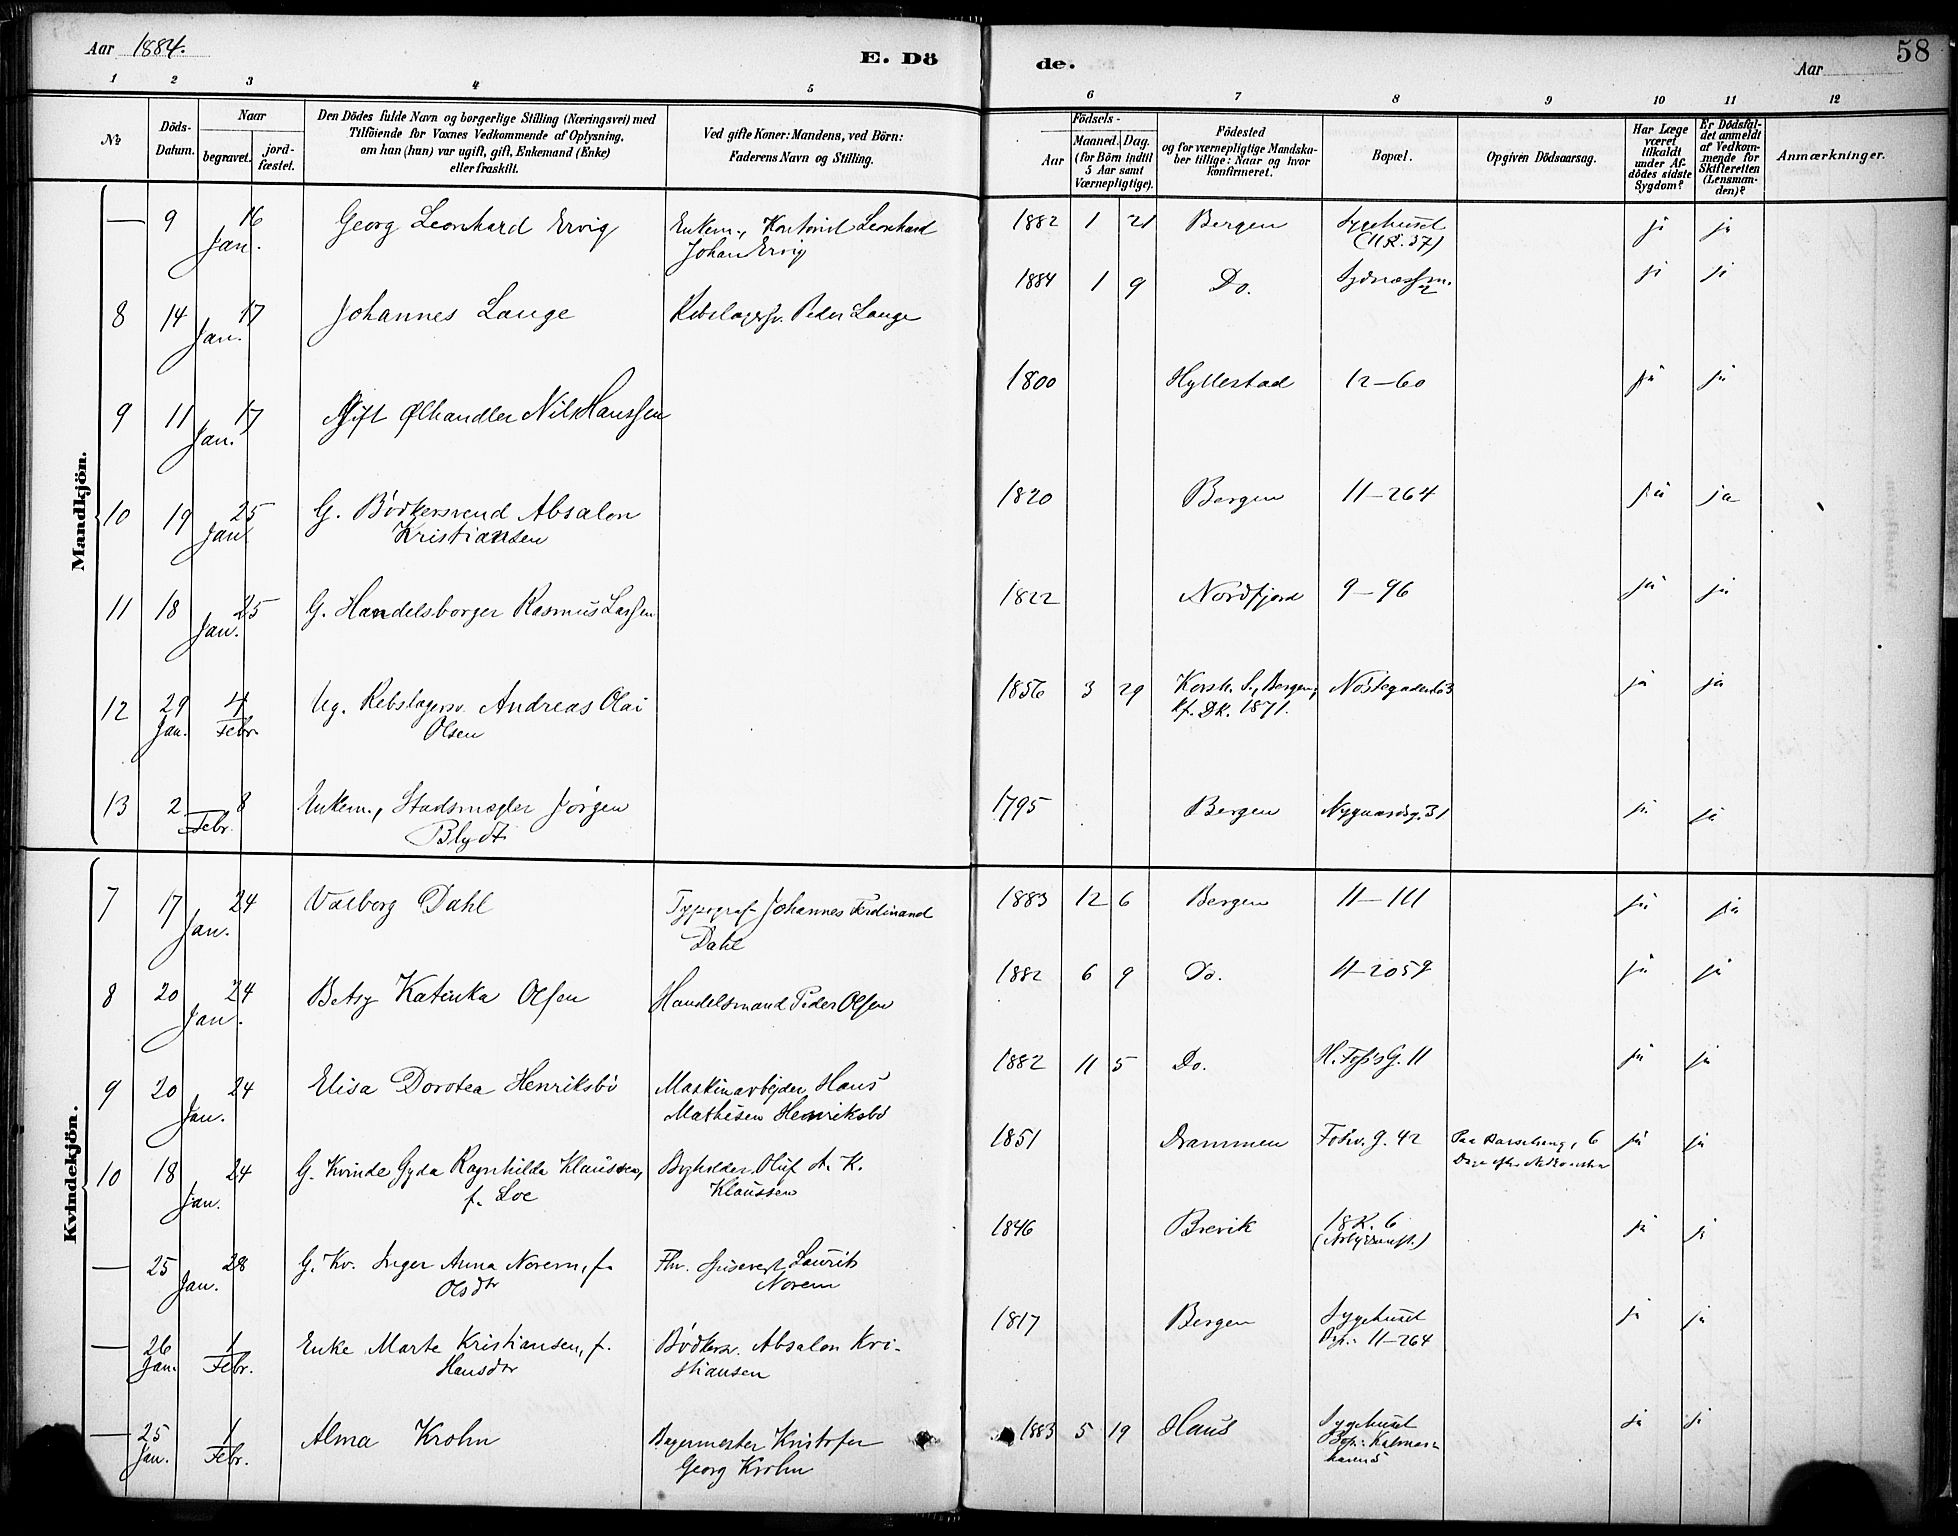 Aar 1884. E. Dö de. Aar 58
1 2 3 4 5 6 7 8 9 10 11 12
No
Döds-Datum.
Naar
begravet.
jord-fæstet.
Den Dödes fulde Navn og borgerlige Stilling (Næringsvei) med
Tilföiende for Voxnes Vedkommende af Oplysning,
om han (hun) var ugift, gift, Enkemand (Enke)
eller fraskilt.
Ved gifte Koner: Mandens, ved Börn:
Faderens Navn og Stilling.
Födsels-
Aar
Maaned. Dag.
(for Börn indtil
5 Aar samt
Værnepligtige).
Födested
og for værnepligtige Mandska-
ber tillige: Naar og hvor
konfirmeret.
Bopæl.
Opgiven Dödsaarsag.
Har Læge
været
tilkaldt
under Af-
dödes sidste
Sygdom?
Er Dödsfal-
det anmeldt
af Vedkom-
mende for
Skifteretten
(Lensman-
den)?
Anmærkninger.
Mandkjön.
— 9 16 Georg Leonhard Ervig Enkem., Kontorist Leonhard 1882 1 21 Bergen Sygehuset ja ja
Jan. Johan Ervig (11 R. 37)
8 14 17 Johannes Lange Rebslagersv. Peder Lange 1884 1 9 Do. ja ja
Jan.
9 11 17 Gift Ølhandler Nils Hanssen 1800 Hyllestad 12-60 ja ja
Jan.
10 19 25 G. Bödkersvend Absalon 1820 Bergen 11-264 ja ja
Jan. Kristiansen
11 18 25 G. Handelsborger Rasmus Larssen 1822 Nordfjord 9-96 ja ja
Jan.
12 29 4 Ug. Rebslagersv. Andreas Olai 1856 3 29 Korsk. S., Bergen, Nöstegaden 63 ja ja
Jan. Febr. Olsen kf. DK. 1871.
13 2 8 Enkem., Stadsmægler Jörgen 1795 Bergen Nygaardsg. 31 ja ja
Febr. Blydt
Kvindekjön.
7 17 24 Valborg Dahl Typograf Johannes Ferdinand 1883 12 6 Bergen 11-111 ja ja
Jan. Dahl
8 20 24 Betsy Katinka Olsen Handelsmand Peder Olsen 1882 6 9 Do. 11-2059 ja ja
Jan.
9 20 24 Elisa Dorotea Henriksbö Maskinarbejder Hans 1882 11 5 Do. H. Foss's G. 11 ja ja
Jan. Mathisen Henriksbö
10 18 24 G. Kvinde Gyda Ragnhilda Klaussen, Bogholder Oluf A. K. 1851 Drammen Fosv. g. 42 Paa Barselseng, 6 ja ja
Jan. f. Loe Klaussen Dage efter Nedkomsten
— 25 28 G. Kv. Inger Anna Norem, f. Fhv. Spisevert Laurits 1846 Brevik 18 R. 6 ja ja
Jan. Olsdtr Norem
— 26 1 Enke Marte Kristiansen, f. Bödkersv. Absalon Kri- 1817 Bergen Sygehuset ja ja
Jan. Febr. Hansdtr stiansen Bop.: 11-264
— 25 1 Alma Krohn Bagermester Kristofer 1883 5 19 Haus Sygehuset ja ja
Jan. Febr. Georg Krohn Bop.: